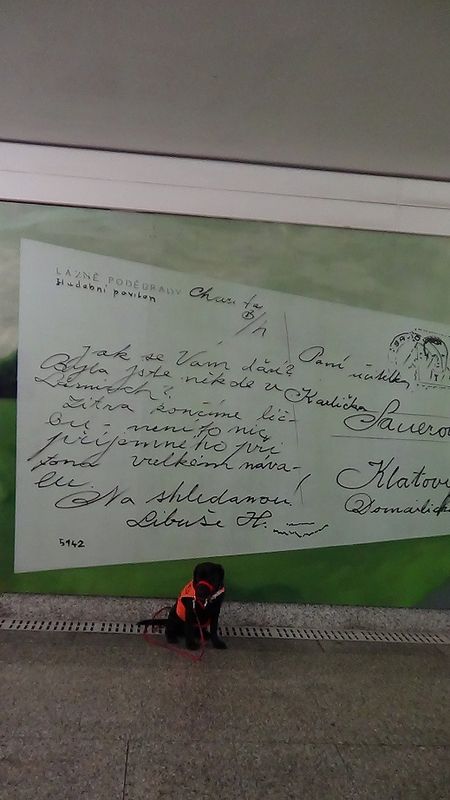 LÁZNĚ PODĚBRADY
Hudební pavilon
Jak se Vám daří?
Byla jste někde v
Lázních?
Zítra končíme léč-
bu - není to nic
příjemného při
tomu velkém nava-
lu.
Na shledanou.
Libuše H.
5942
Paní učitelka
Karlička
Sauerov
Klatov
Domažlick